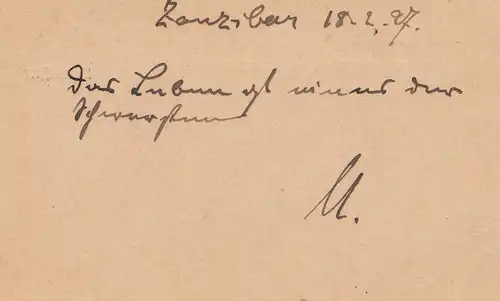 Zanzibar 18.2.27.
Das Leben ist eines der
Schwersten
M.